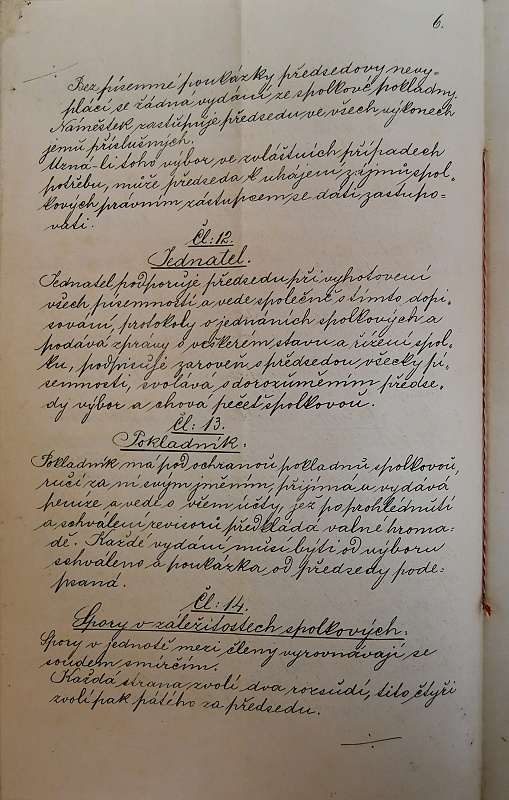 6.
Bez písemné poukázky předsedovy nevy-
plácí se žádná vydání ze spolkové pokladny.
Náměstek zastupuje předsedu ve všech výkonech
jemu příslušných.
Uzná-li toho výbor ve zvláštních případech
potřebu, může předseda k uhájení zájmů spol-
kových právním zástupcem se dáti zastupo-
vati.
Čl: 12.
Jednatel.
Jednatel podporuje předsedu při vyhotovení
všech písemností a vede společně s tímto dopi-
sování, protokoly o jednáních spolkových a
podává zprávy o veškerém stavu a řízení spol-
ku, podpisuje zároveň s předsedou všecky pí-
semnosti, svolává s dorozuměním předse-
dy výbor a chová pečeť spolkovou.
Čl: 13.
Pokladník.
Pokladník má pod ochranou pokladnu spolkovou,
ručí za ni svým jměním, přijímá a vydává
peníze a vede o všem účty, jež po prohlédnutí
a schválení revisorů předkládá valné hroma-
dě. Každé vydání musí býti od výboru
schváleno a poukázka od předsedy pode-
psaná.
Čl: 14.
Spory v záležitostech spolkových.
Spory v jednotě mezi členy vyrovnávají se
soudem smírčím.
Každá strana zvolí dva rozsudí, tito čtyři
zvolí pak pátého za předsedu.